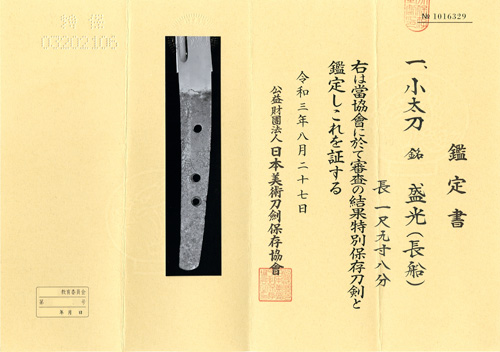 № 1016329
鑑定書
一、小太刀 銘 盛光(長船)
長 一尺九寸八分
右は當協會に於て審査の結果特別保存刀剣と
鑑定しこれを証する
令和三年八月二十七日
公益財團法人 日本美術刀劍保存協會
特保
03202106
教育委員会
第 号
年 月 日